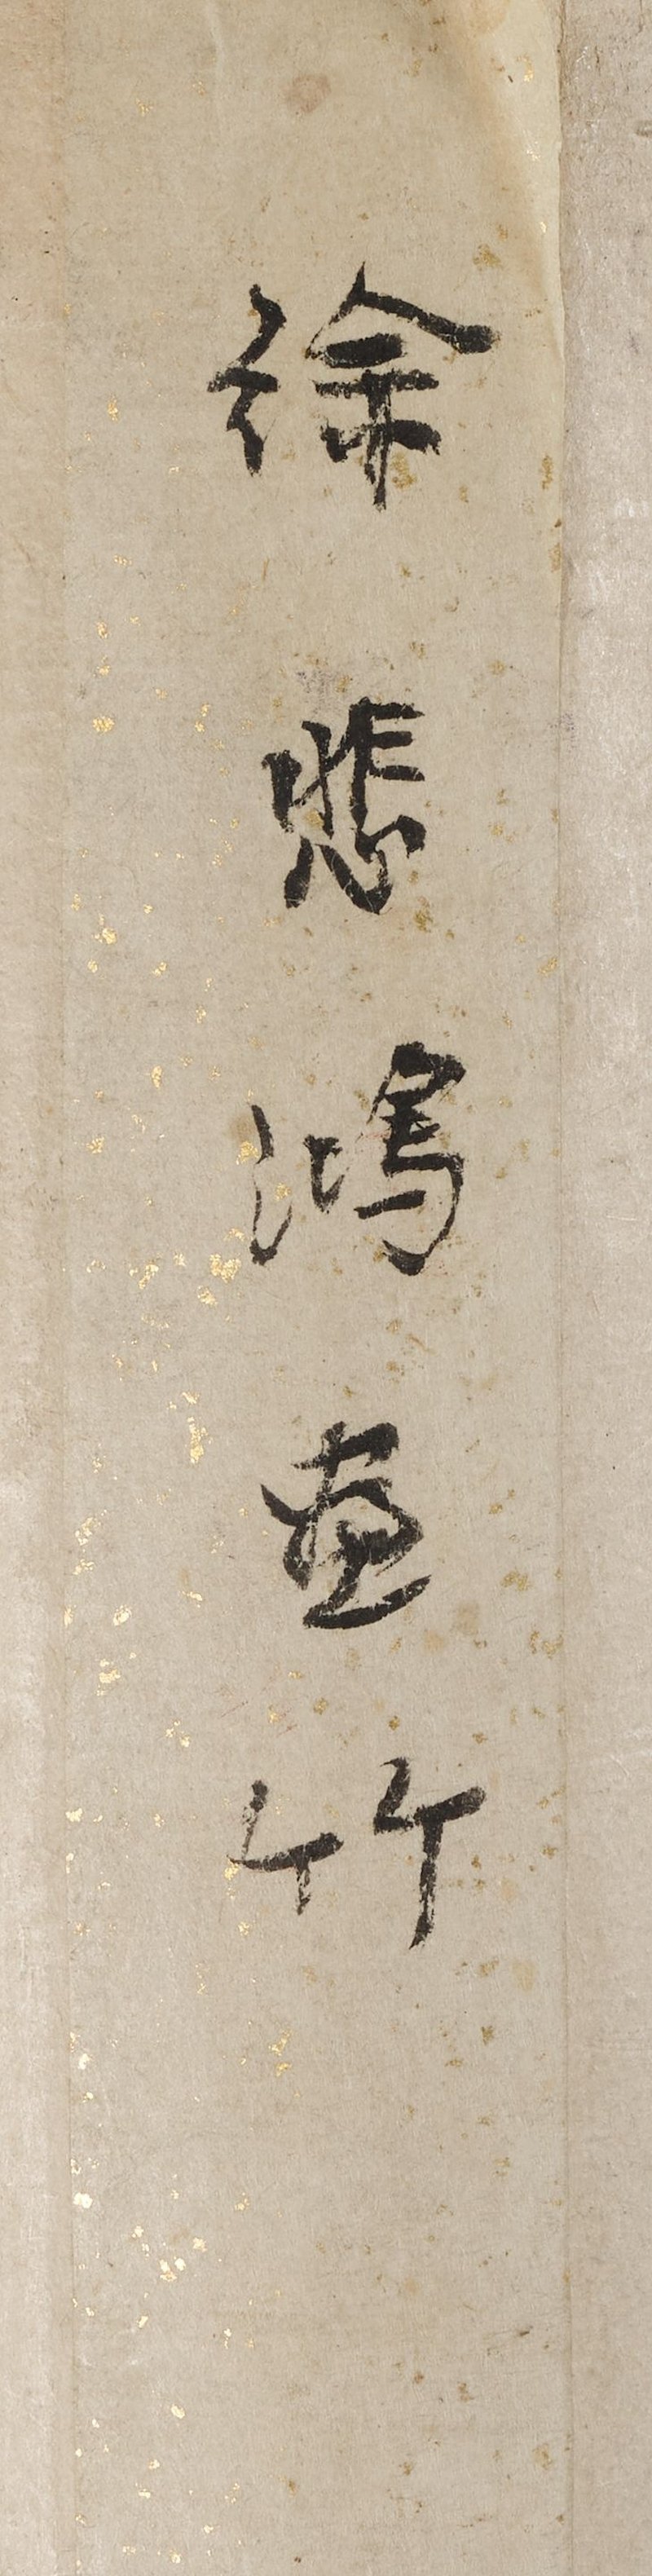 徐悲鴻畫竹